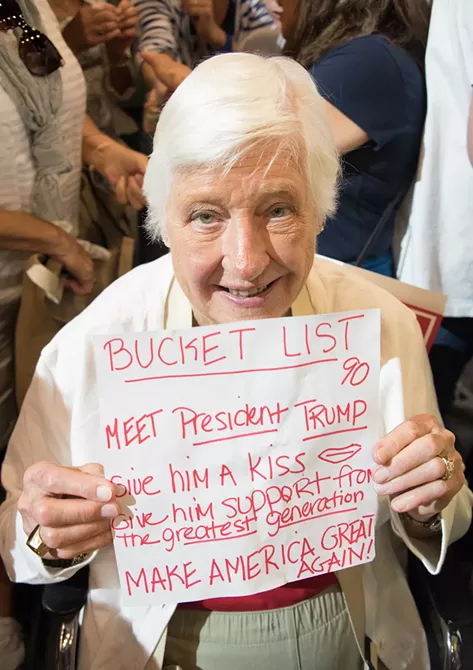 BUCKET LIST
90
MEET President TRUMP
Give HiM A KISS
Give HiM SUPPORT from
the greatest generation
MAKE AMERICA GREAT
AGAIN!